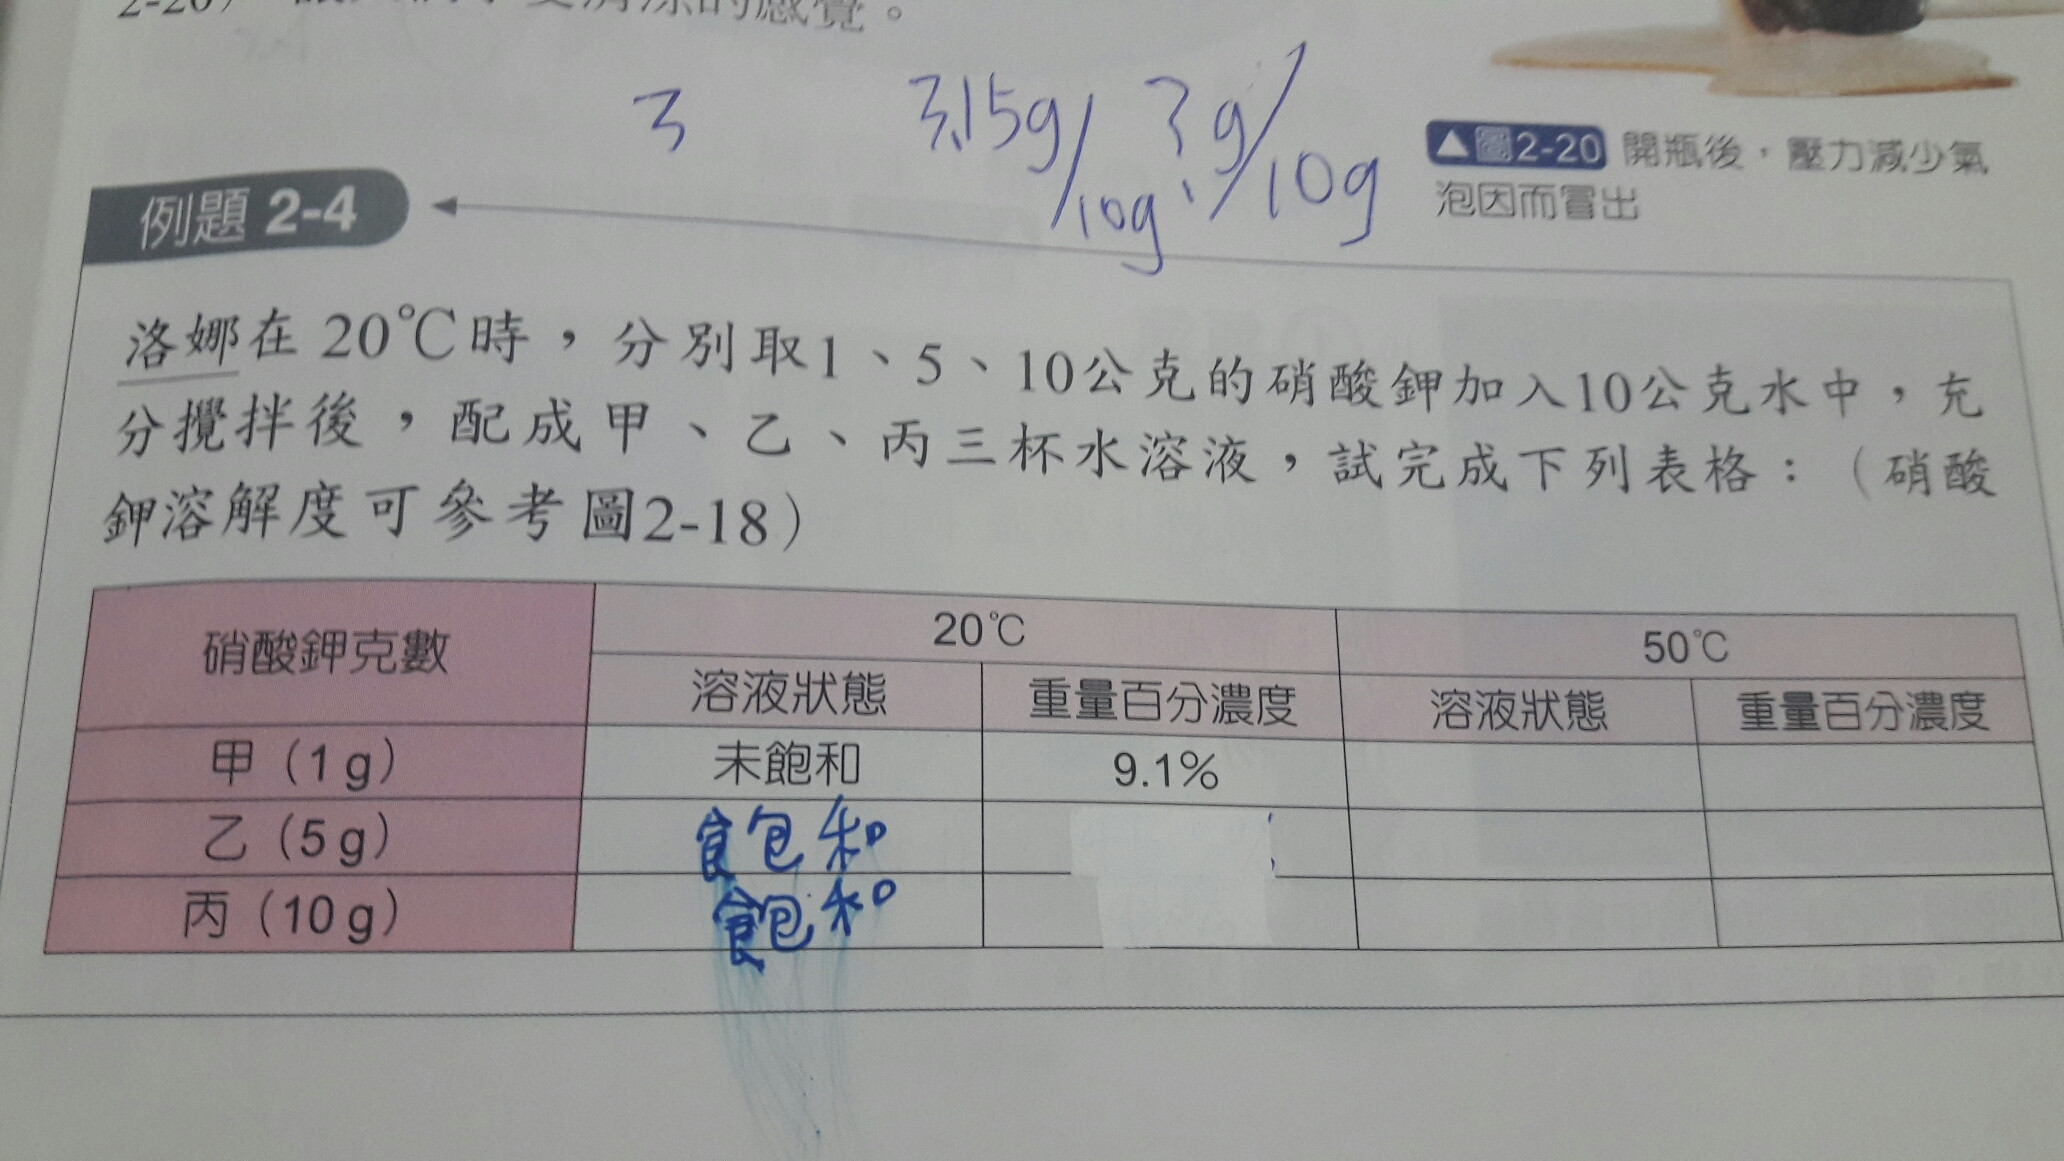 的感覺。
3 3.15g/10g, ?g/10g
▲圖2-20 開瓶後,壓力減少氣
泡因而冒出
例題 2-4
洛娜在 20℃時,分別取1、5、10公克的硝酸鉀加入10公克水中,充
分攪拌後,配成甲、乙、丙三杯水溶液,試完成下列表格:(硝酸
鉀溶解度可參考圖2-18)
硝酸鉀克數 20℃ 50℃
溶液狀態 重量百分濃度 溶液狀態 重量百分濃度
甲(1 g) 未飽和 9.1%
乙(5 g) 飽和
丙(10 g) 飽和